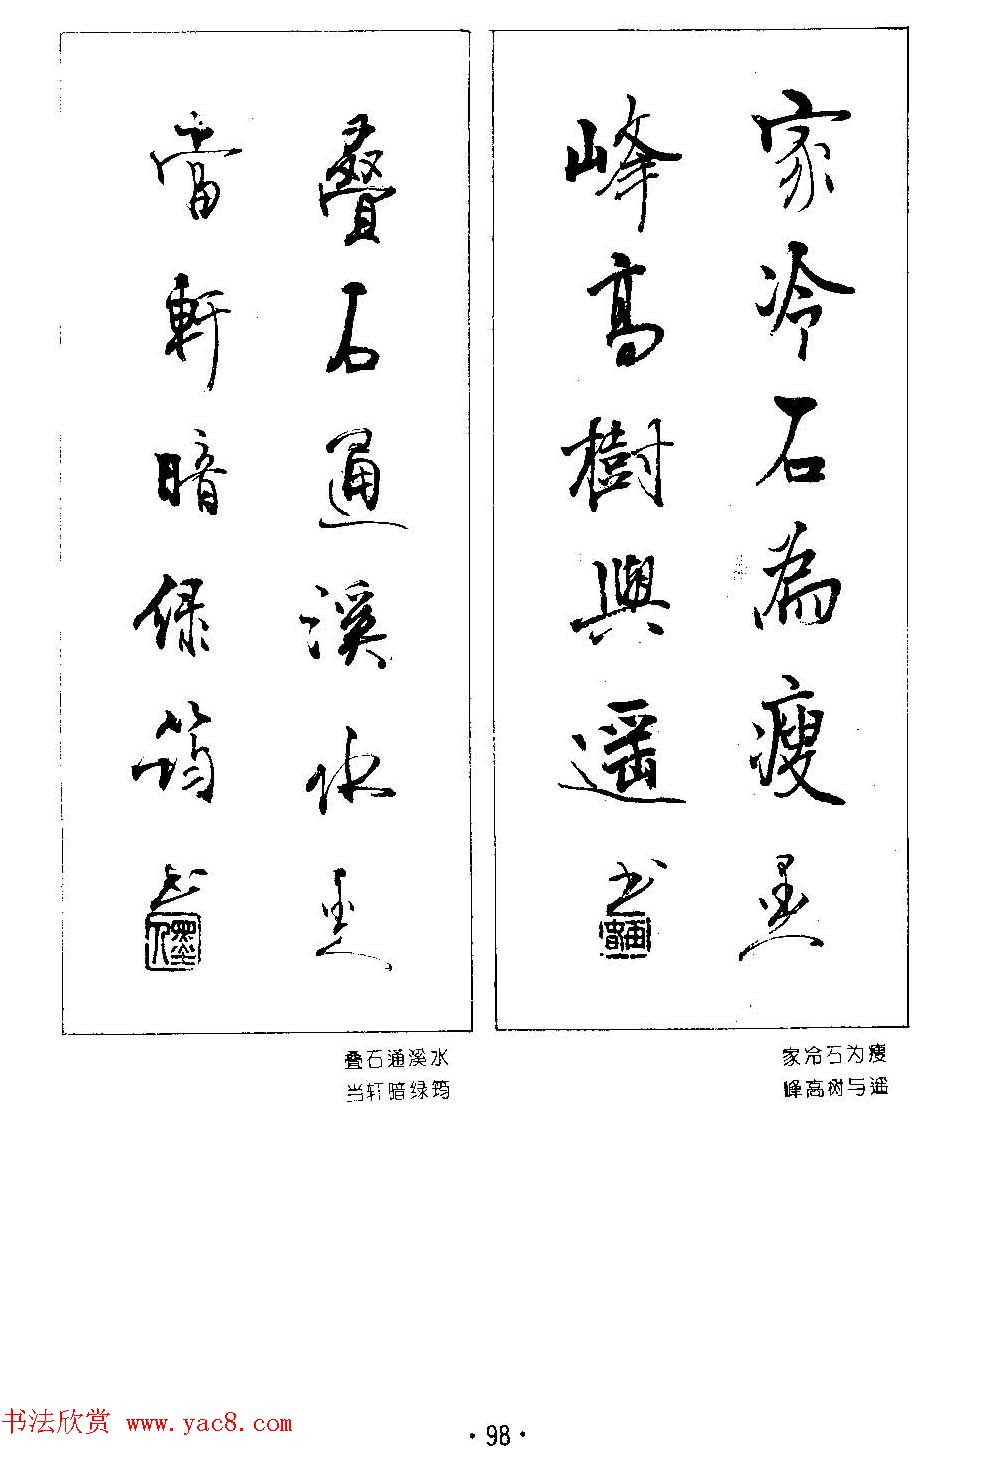 家冷石為瘦 墨人
峰高樹與遥 书
家冷石为瘦
峰高树与遥
叠石通溪水 墨人
當軒暗绿筠 书
墨人
叠石通溪水
当轩暗绿筠
书法欣赏 www.yac8.com
·98·